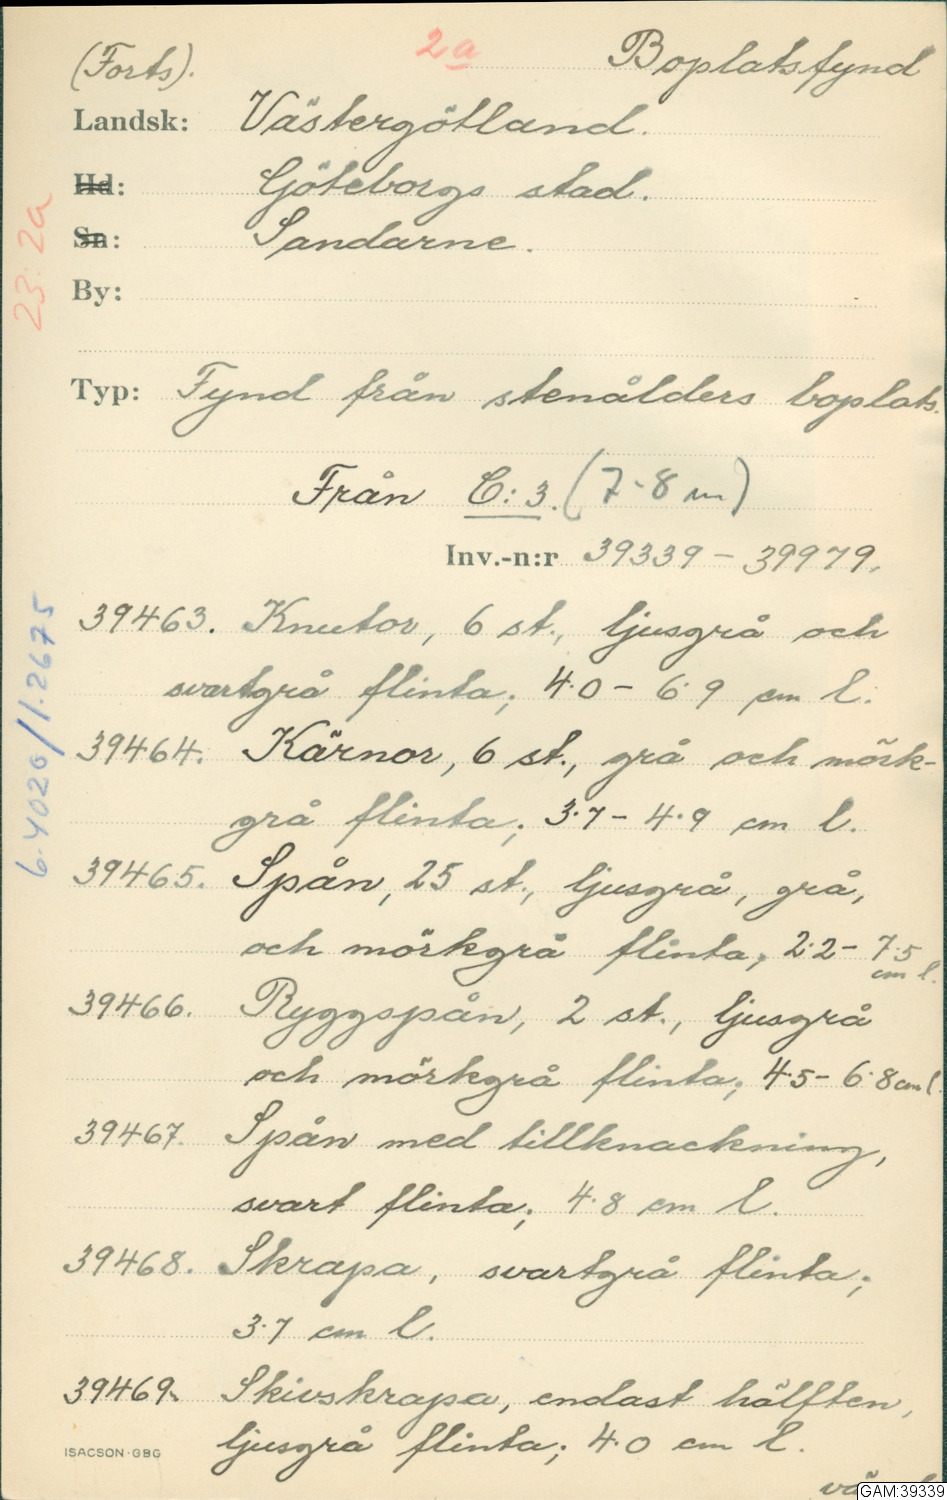 (Forts). 2a Boplatsfynd
Landsk: Västergötland.
Hd: Göteborgs stad.
Sn: Sandarne.
By:
Typ: Fynd från stenålders boplats.
Från C:3. (7-8 m)
Inv.-n:r 39339 - 39979.
39463. Knutor, 6 st., ljusgrå och
svartgrå flinta; 4.0 - 6.9 cm l.
39464. Kärnor, 6 st., grå och mörk-
grå flinta; 3.7 - 4.9 cm l.
39465. Spån, 25 st., ljusgrå, grå,
och mörkgrå flinta; 2.2 - 7.5
cm l.
39466. Ryggspån, 2 st., ljusgrå
och mörkgrå flinta; 4.5 - 6.8 cm l.
39467. Spån med tillknackning,
svart flinta; 4.8 cm l.
39468. Skrapa, svartgrå flinta;
3.7 cm l.
39469. Skivskrapa, endast hälften,
ljusgrå flinta; 4.0 cm l.
ISACSON·GBG
GAM:39339
23:2a
6.4020/1.2675